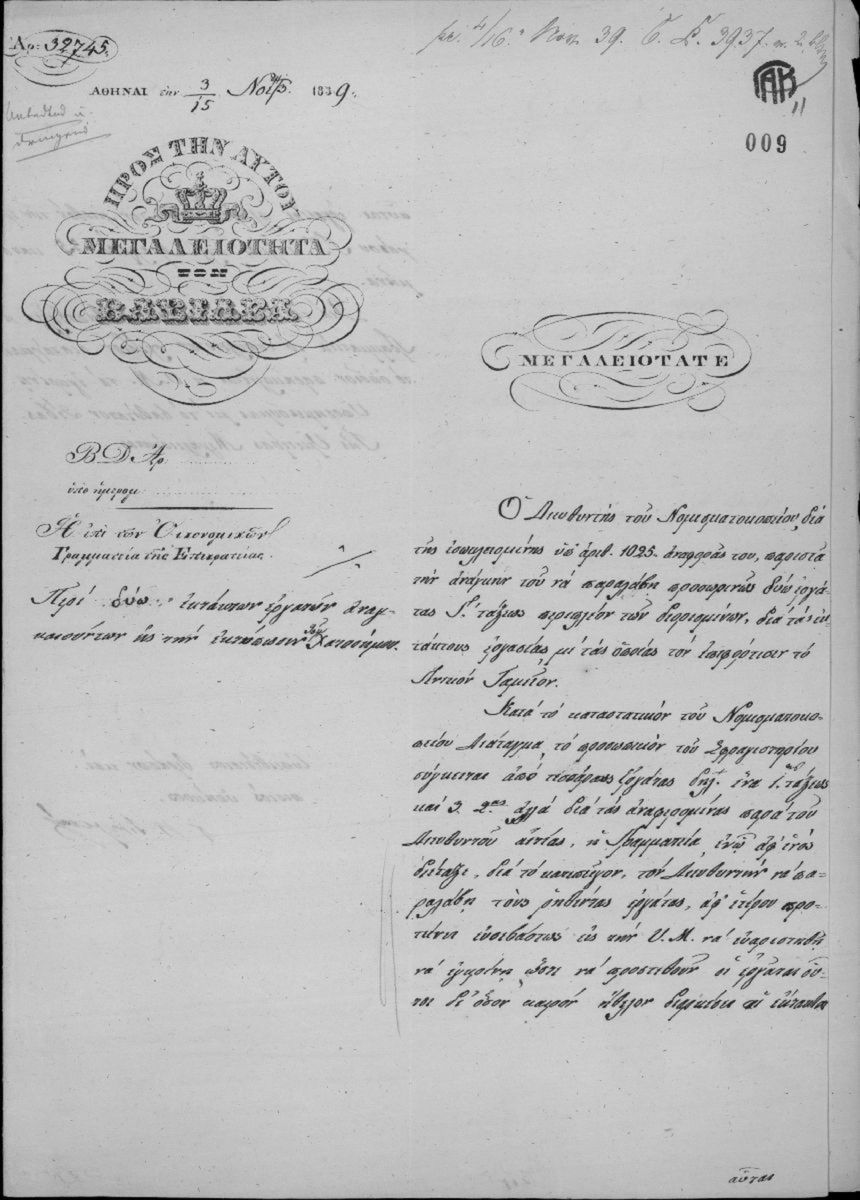 Ἀρ: 32745.
pr. 4/16. Nov. 39. 3937.
ΑΚ
11
009
ΑΘΗΝΑΙ τὴν 3/15 Νοεμβ. 1839.
ΠΡΟΣ ΤΗΝ ΑΥΤΟΥ
ΜΕΓΑΛΕΙΟΤΗΤΑ
ΤΟΝ
ΒΑΣΙΛΕΑ
ΜΕΓΑΛΕΙΟΤΑΤΕ
Β Δ Ἀρ.
ὑπὸ ἡμερομ.
Ἡ ἐπὶ τῶν Οἰκονομικῶν
Γραμματεία τῆς Ἐπικρατείας.
Περὶ δύω ἐκτάκτων ἐργατῶν ἀναγ-
καιούντων εἰς τὴν ἐκτύπωσιν τοῦ Χαρτοσήμου.
Ὁ Διευθυντὴς τοῦ Νομισματοκοπείου, διὰ
τῆς ἐσωκλειομένης ὑπ' ἀριθ. 1025. ἀναφορᾶς του, παριστᾶ
τὴν ἀνάγκην τοῦ νὰ παραλάβῃ προσωρινῶς δύο ἐργά-
τας Γ. τάξεως περιπλέον τῶν διωρισμένων, διὰ τὰς ἐκ-
τάκτους ἐργασίας μὲ τὰς ὁποίας τὸν ἐπεφόρτισεν τὸ
Ταμεῖον.
Κατὰ τὸ καταστατικὸν τοῦ Νομισματοκο-
πείου Διάταγμα, τὸ προσωπικὸν τοῦ Σφραγιστηρίου
σύγκειται ἀπὸ τεσσάρας ἐργάτας δηλ. ἕνα 1. τάξεως
καὶ 3. 2ας ἀλλὰ διὰ τὰς ἀναφερομένας παρὰ τοῦ
Διευθυντοῦ αἰτίας, ἡ Γραμματεία, ἐνῷ ἀφ' ἑνὸς
διέταξε, διὰ τὸ κατεπεῖγον, τὸν Διευθυντὴν νὰ πα-
ραλάβῃ τοὺς ῥηθέντας ἐργάτας, ἀφ' ἑτέρου προ-
τείνει εὐσεβάστως εἰς τὴν Υ. Μ. νὰ εὐαρεστηθῇ
νὰ ἐγκρίνῃ ὥστε νὰ προστεθοῦν οἱ ἐργάται οὗ-
τοι δι' ὅσον καιρὸν ἤθελον διαρκέσει αἱ ἔκτακτοι
αὗται